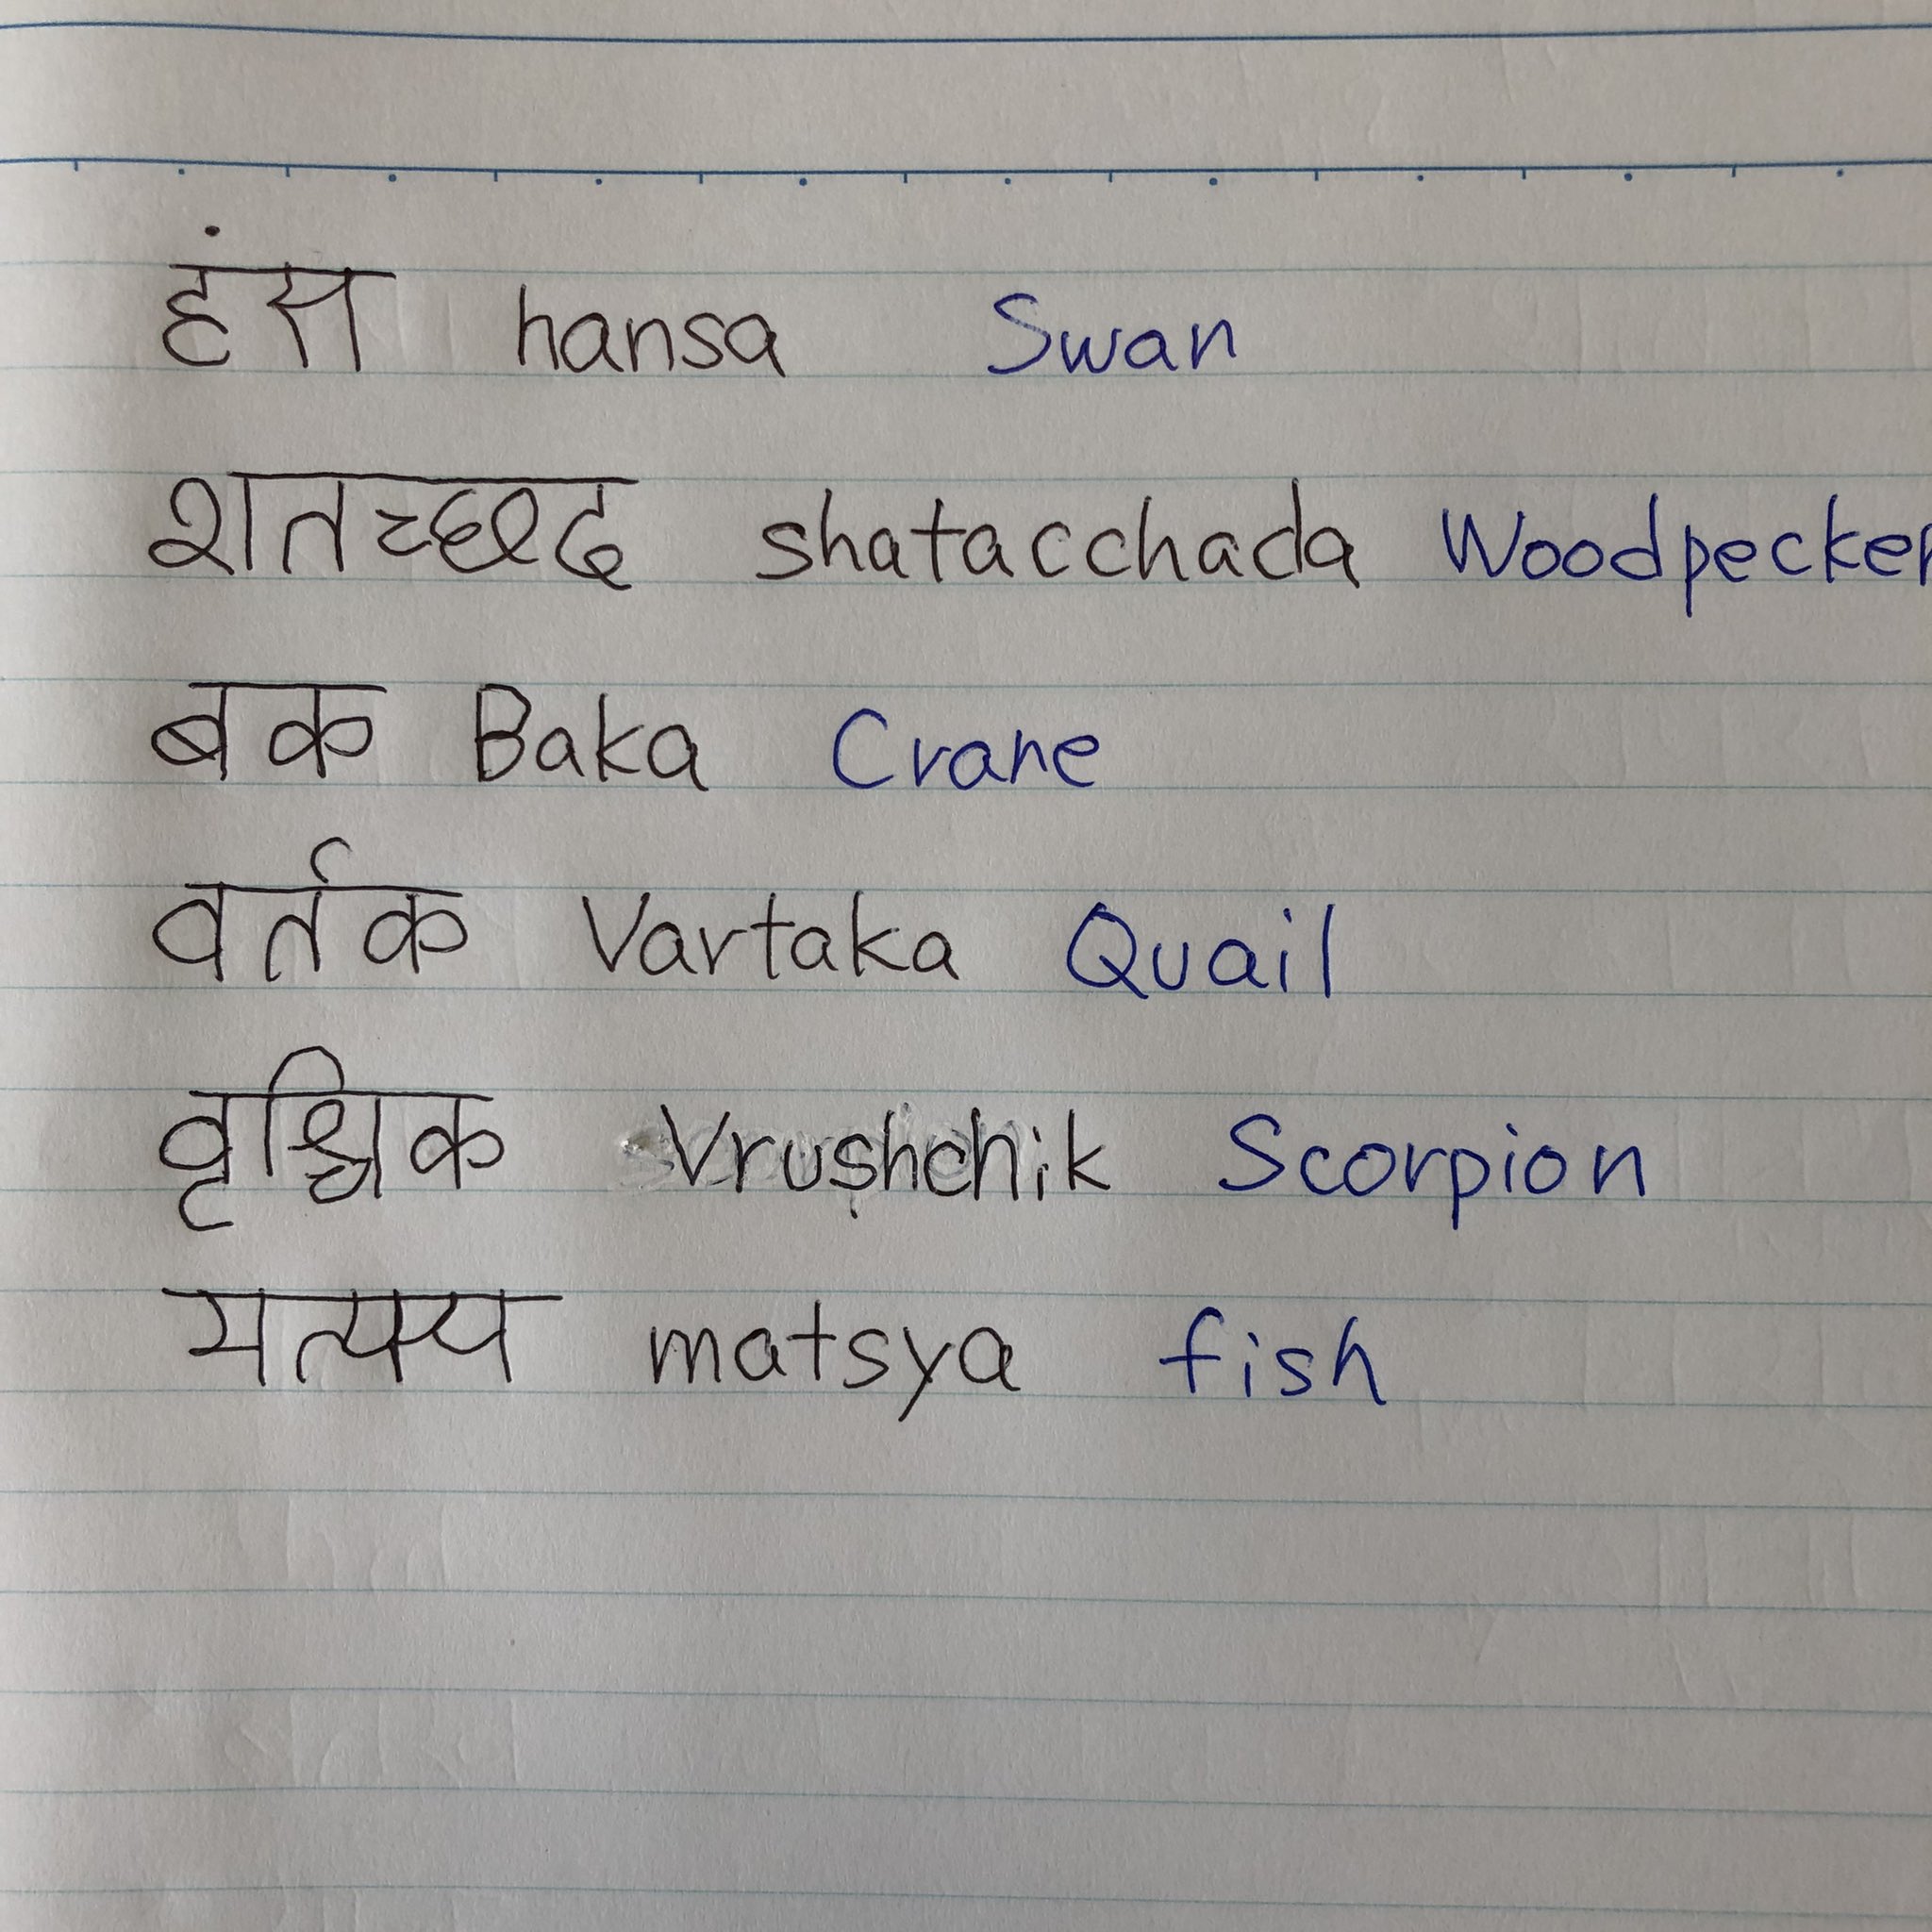 हंस hansa Swan
शतच्छद shatacchada Woodpecker
बक Baka Crane
वर्तक Vartaka Quail
वृश्चिक Vrushchik Scorpion
मत्स्य matsya fish